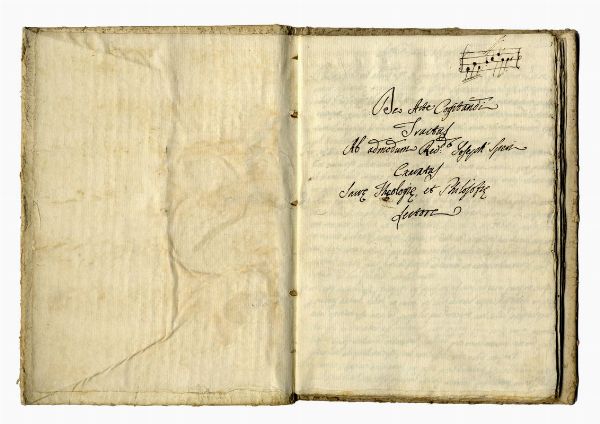 De Arte Cogitandi
Tractatus
Ab admodum Red.º Joseph
Creatus
Sacrę Theologię, et Philosofię
Lectore